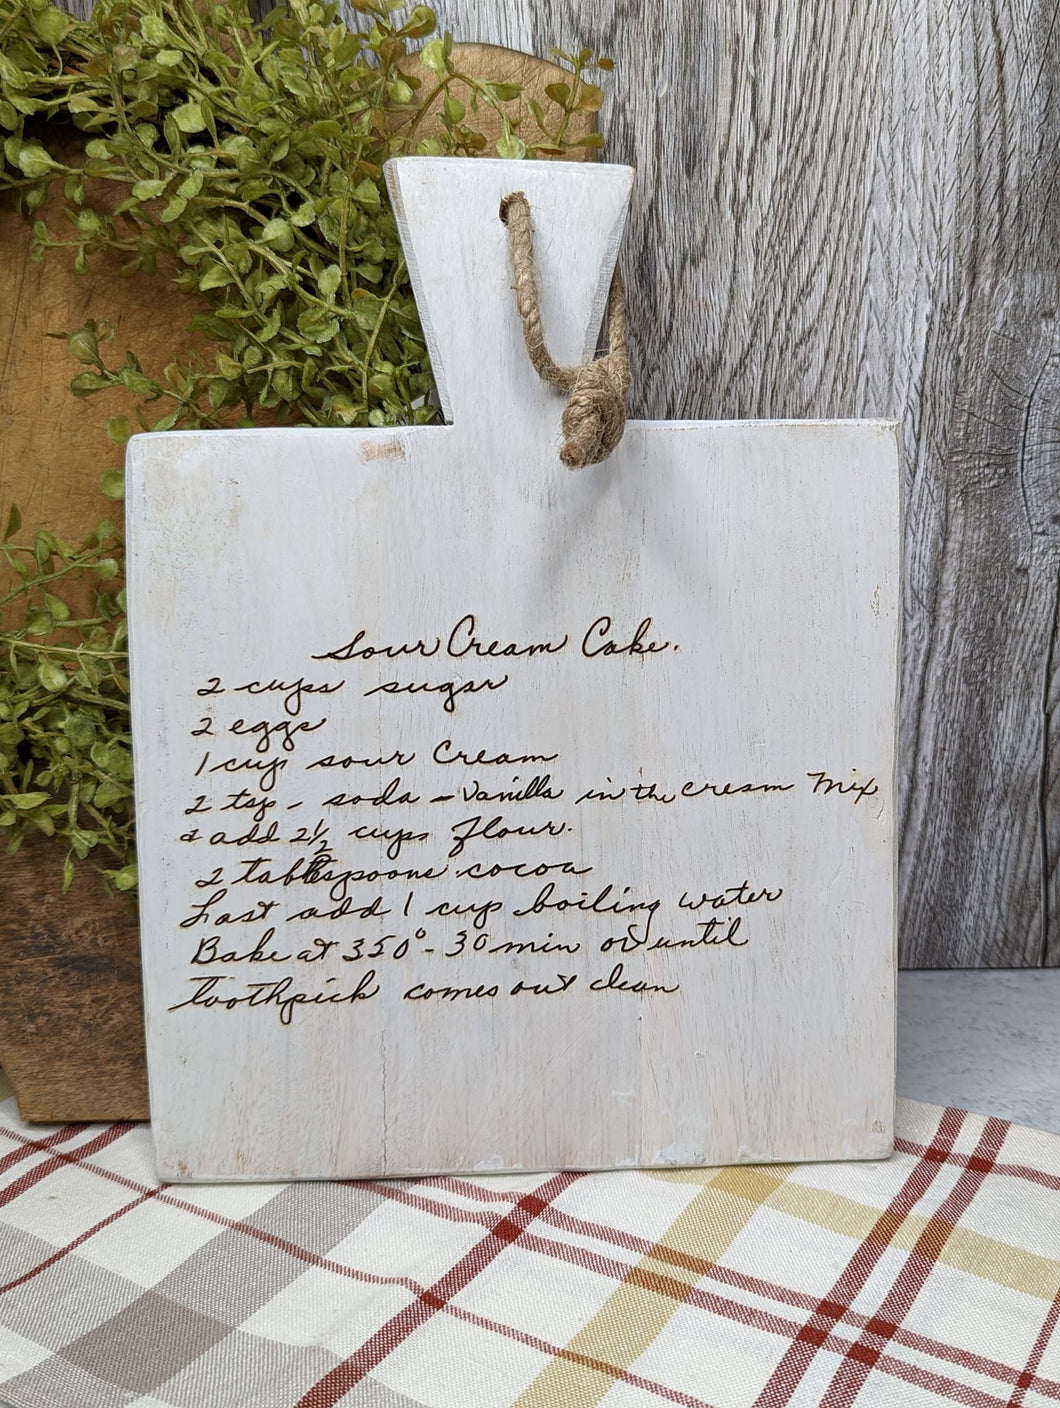 Sour Cream Cake.
2 cups sugar
2 eggs
1 cup sour Cream
2 tsp - soda - Vanilla in the cream Mix
& add 2 1/2 cups flour.
2 tablespoons cocoa
Last add 1 cup boiling water
Bake at 350° - 30 min or until
toothpick comes out clean